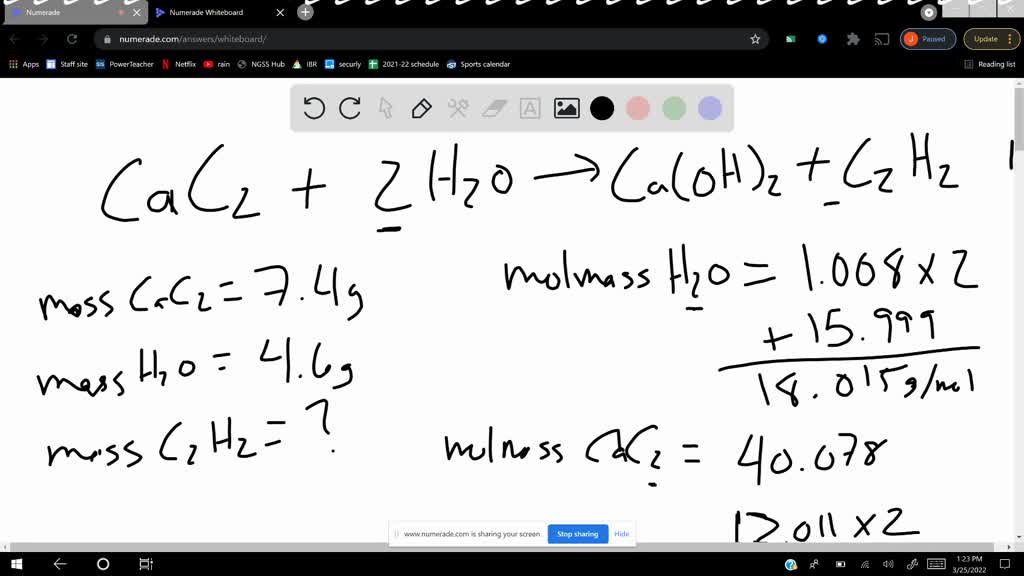 Numerade
Numerade Whiteboard
numerade.com/answers/whiteboard/
J
Paused
Update
Apps
Staff site
PowerTeacher
Netflix
rain
NGSS Hub
IBR
securly
2021-22 schedule
Sports calendar
Reading list
A
CaC2 + 2H2O → Ca(OH)2 + C2H2
mass CaC2 = 7.4g
mass H2O = 4.6g
mass C2H2 = ?
molmass H2O = 1.008 x 2
+ 15.999
18.015g/mol
molmass CaC2 = 40.078
12.011 x 2
www.numerade.com is sharing your screen.
Stop sharing
Hide
1:23 PM
3/25/2022